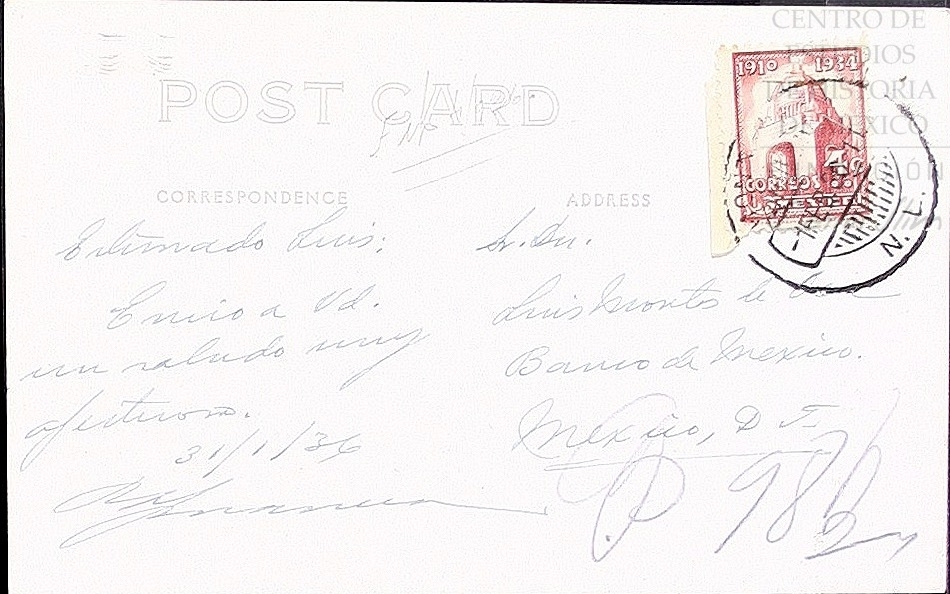 CENTRO DE
ESTUDIOS
DE HISTORIA
DE MÉXICO
POST CARD
1910 1934
4¢
CORREOS
N. L.
CORRESPONDENCE
ADDRESS
Estimado Luis:
Envio a Vd.
un saludo muy
afectuoso.
31/1/36
Sr. Dn.
Luis Montes de Oca
Banco de Mexico.
Mexico, D F.
P 98